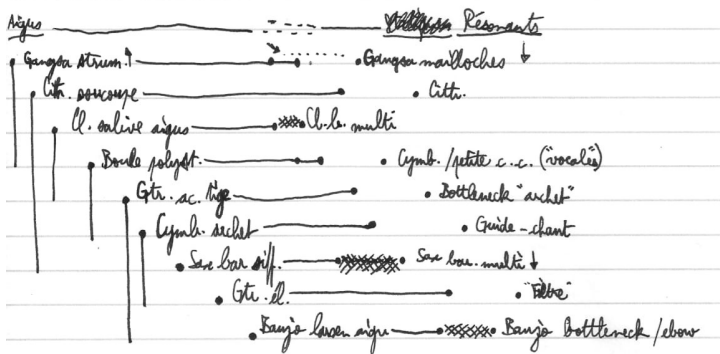 Aigus Résonants
Gangsa strum. Gangsa mailloches
Cith. soucoupe Cith.
Cl. salive aigus Cl. b. multi
Boule polyst. Cymb. / petite c.c. ("vocales")
Gtr. ac. tige Bottleneck "archet"
Cymb. archet Guide-chant
Sax bar siff. Sax bar. multi
Gtr. él. "Filtre"
Banjo larsen aigu Banjo bottleneck / ebow